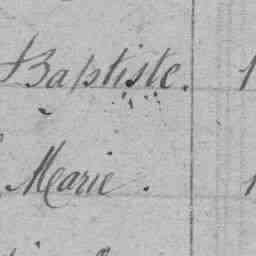 Baptiste. 1
Marie. 1